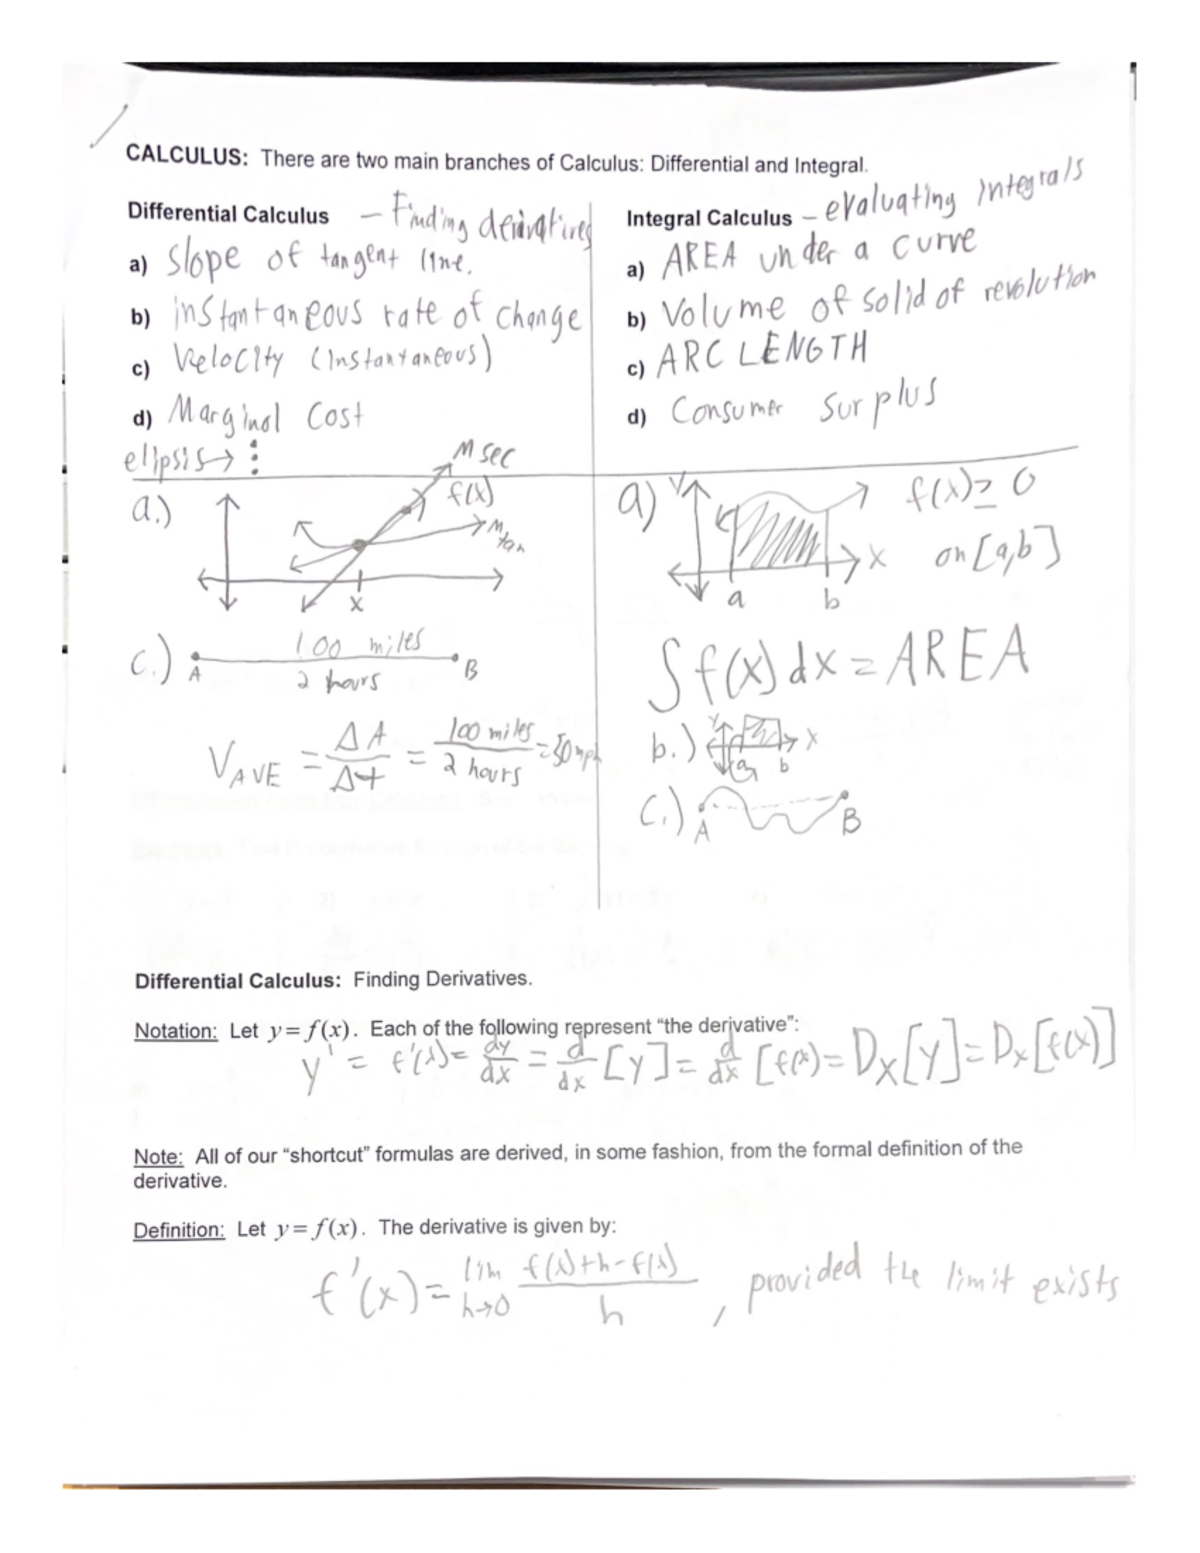 CALCULUS: There are two main branches of Calculus: Differential and Integral.
Differential Calculus – Finding derivatives
a) slope of tangent line.
b) instantaneous rate of change
c) Velocity (instantaneous)
d) Marginal Cost
elipsis→ ⋮
Integral Calculus – evaluating integrals
a) AREA under a curve
b) Volume of solid of revolution
c) ARC LENGTH
d) Consumer Surplus
a.)
M sec
f(x)
M tan
x
c.) A 100 miles B
2 hours
V AVE = ΔA/Δt = 100 miles/2 hours = 50 mph
a) y
f(x) ≥ 0
x on [a,b]
a b
∫ f(x) dx = AREA
b.) y x
a b
c.) A B
Differential Calculus: Finding Derivatives.
Notation: Let y = f(x). Each of the following represent “the derivative”:
y' = f'(x) = dy/dx = d/dx [y] = d/dx [f(x) = Dx[y] = Dx[f(x)]
Note: All of our “shortcut” formulas are derived, in some fashion, from the formal definition of the
derivative.
Definition: Let y = f(x). The derivative is given by:
f'(x) = lim h→0 f(x)+h-f(x)/h , provided the limit exists